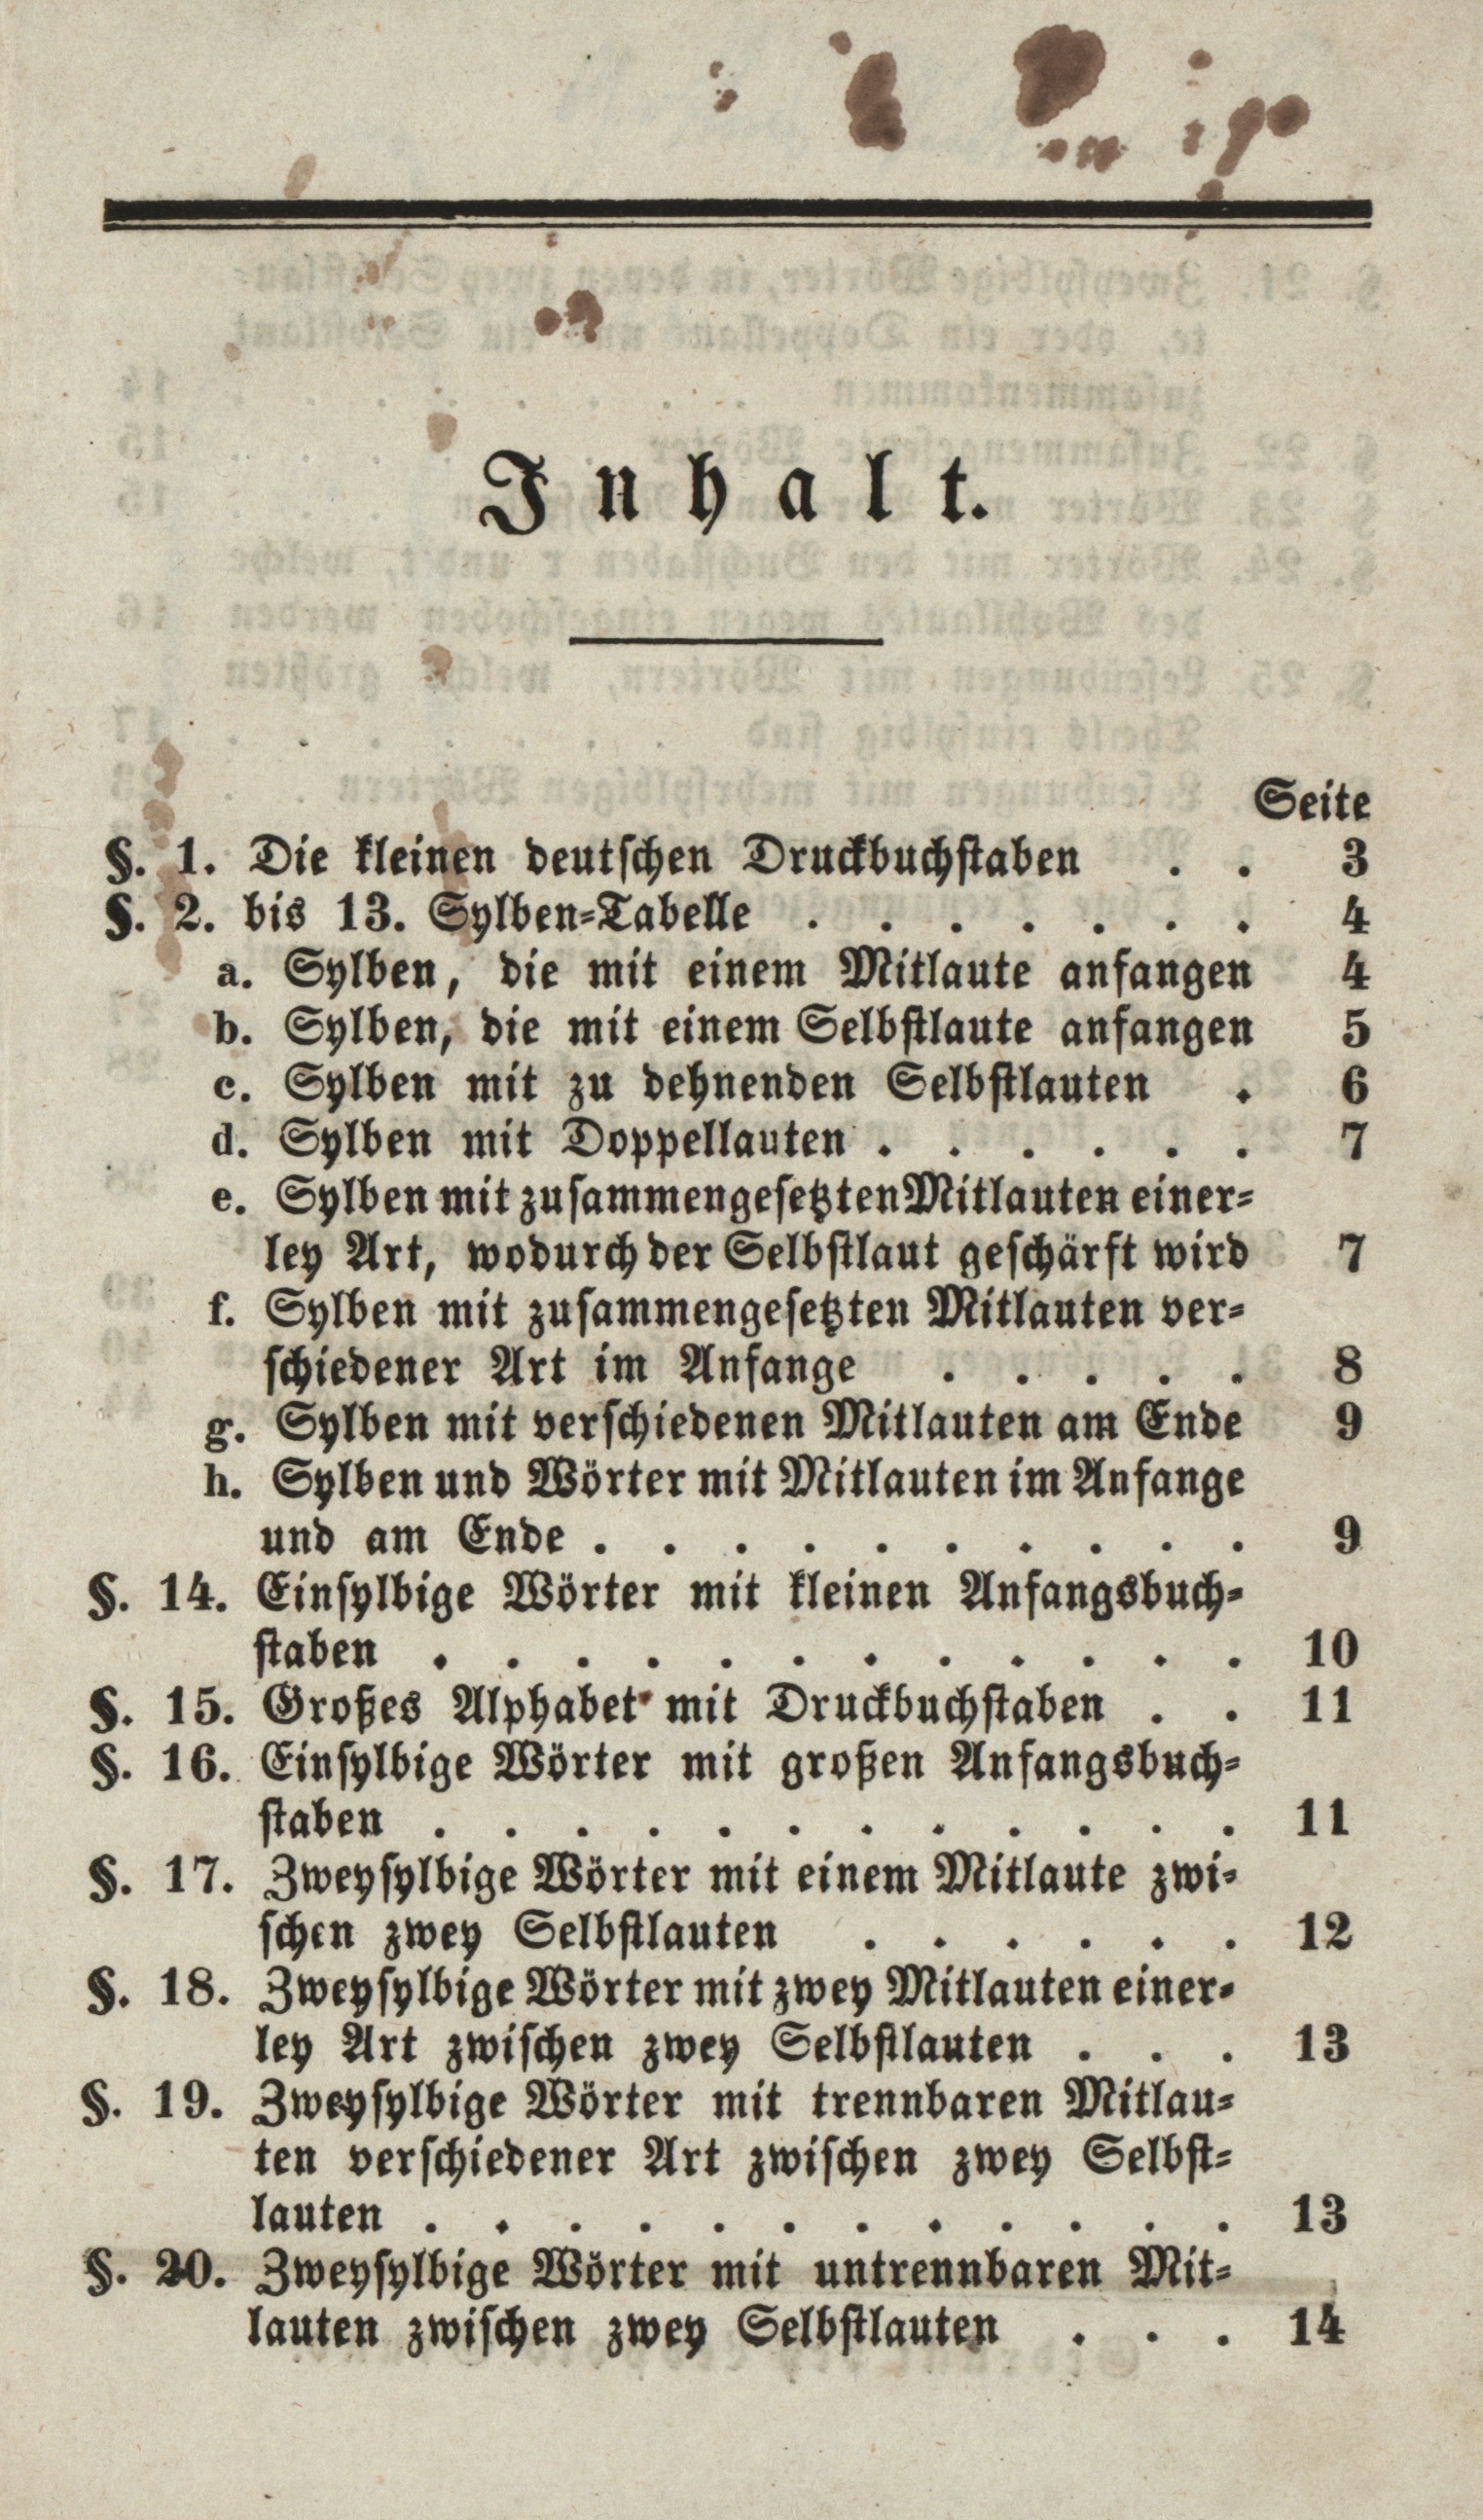 Inhalt.
Seite
§. 1. Die kleinen deutschen Druckbuchstaben . . 3
§. 2. bis 13. Sylben=Tabelle . . . . . . . 4
a. Sylben, die mit einem Mitlaute anfangen 4
b. Sylben, die mit einem Selbstlaute anfangen 5
c. Sylben mit zu dehnenden Selbstlauten . 6
d. Sylben mit Doppellauten . . . . . . 7
e. Sylben mit zusammengesetzten Mitlauten einer=
ley Art, wodurch der Selbstlaut geschärft wird 7
f. Sylben mit zusammengesetzten Mitlauten ver=
schiedener Art im Anfange . . . . . 8
g. Sylben mit verschiedenen Mitlauten am Ende 9
h. Sylben und Wörter mit Mitlauten im Anfange
und am Ende . . . . . . . . . . 9
§. 14. Einsylbige Wörter mit kleinen Anfangsbuch=
staben . . . . . . . . . . . . 10
§. 15. Großes Alphabet mit Druckbuchstaben . . 11
§. 16. Einsylbige Wörter mit großen Anfangsbuch=
staben . . . . . . . . . . . . 11
§. 17. Zweysylbige Wörter mit einem Mitlaute zwi=
schen zwey Selbstlauten . . . . . . 12
§. 18. Zweysylbige Wörter mit zwey Mitlauten einer=
ley Art zwischen zwey Selbstlauten . . . 13
§. 19. Zweysylbige Wörter mit trennbaren Mitlau=
ten verschiedener Art zwischen zwey Selbst=
lauten . . . . . . . . . . . . 13
§. 20. Zweysylbige Wörter mit untrennbaren Mit=
lauten zwischen zwey Selbstlauten . . . 14